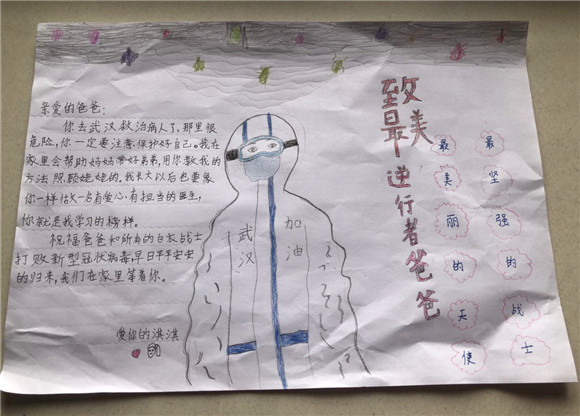 亲爱的爸爸：
你去武汉救治病人了，那里很
危险，你一定要注意保护好自己。我在
家里会帮助妈妈带好弟弟，用你教我的
方法照顾姥姥的，我长大以后也要像
你一样做一名有爱心有担当的医生，
你就是我学习的榜样。
祝福爸爸和所有的白衣战士
打败新型冠状病毒，早日平平安安
的归来，我们在家里等着你。
爱你的淇淇
武汉
加油
致
最美
逆行者爸爸
最美丽的天使
最坚强的战士